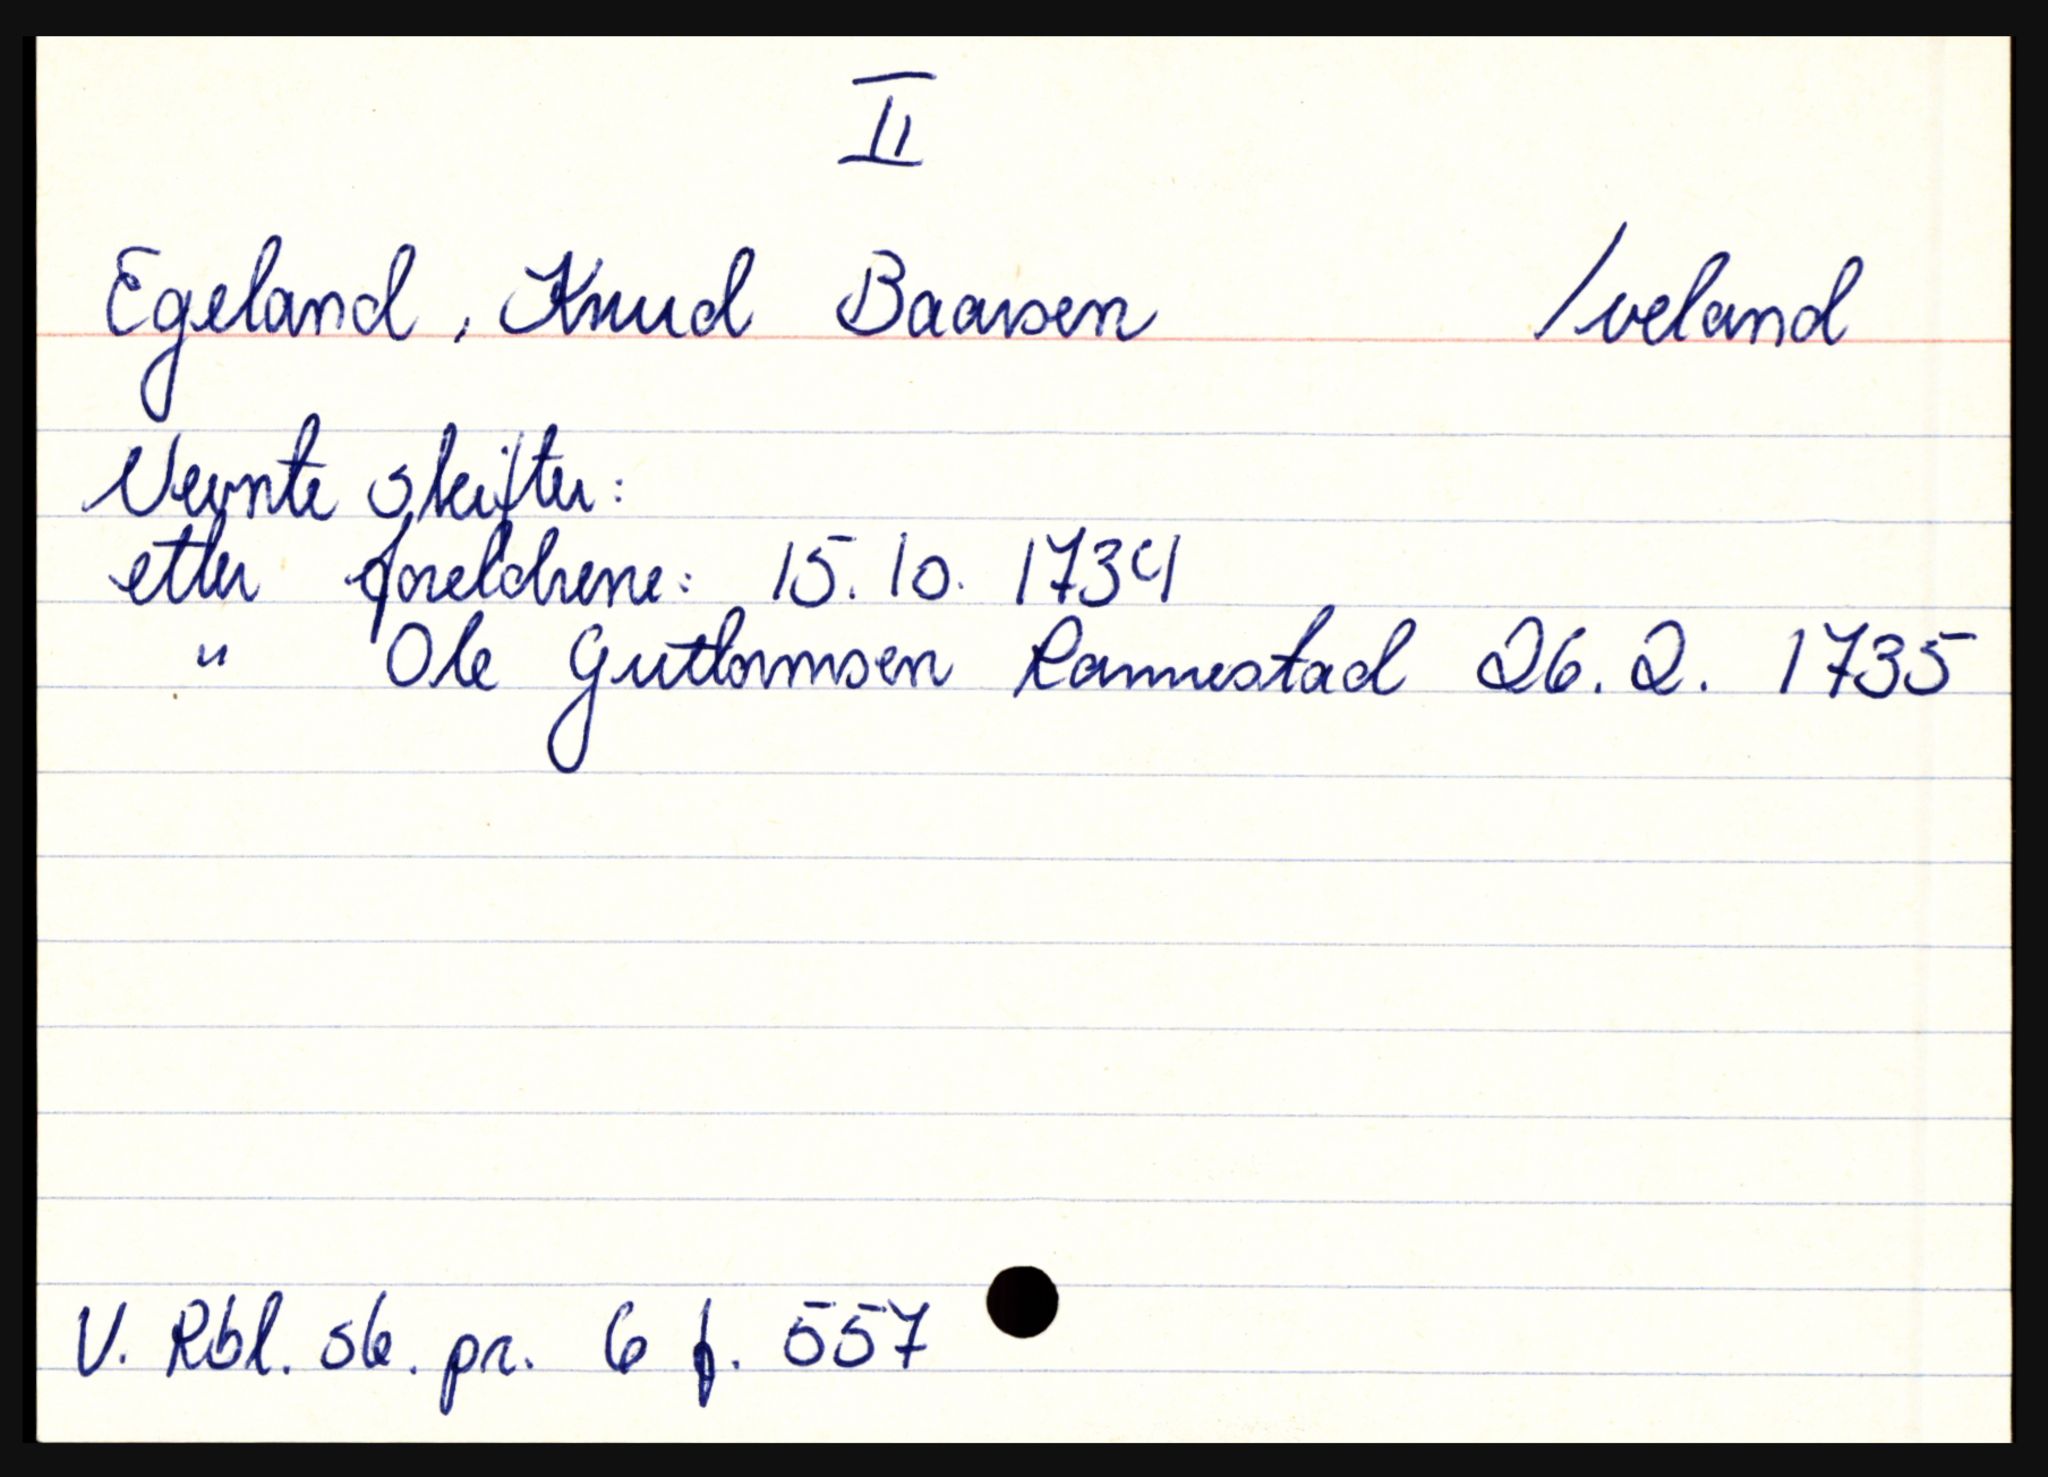 II
Egeland, Knud Baarsen Iveland
Nevnte skifter:
etter foreldrene: 15. 10. 1734
" Ole Guttormsen Rannestad 26. 2. 1735
V. Rbl. sk. pr. 6 f. 557